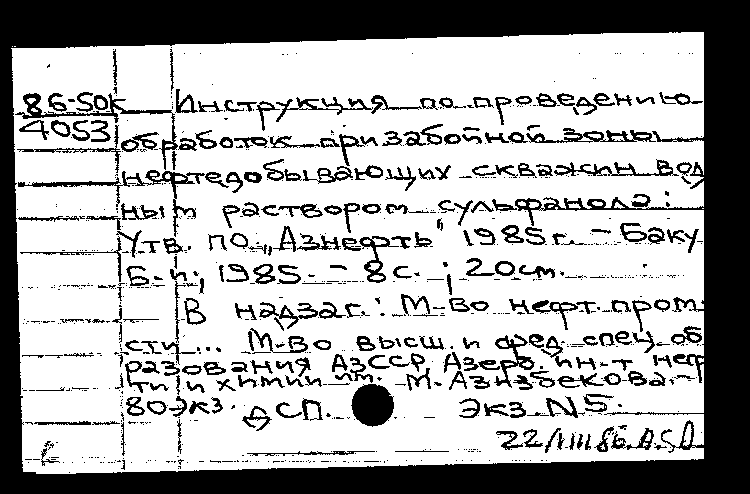 86-50к Инструкция по проведению
4053 обработок призабойной зоны
нефтедобывающих скважин вод
ным раствором сульфанола:
Утв. ПО „Азнефть" 1985г. - Баку
Б.и., 1985. - 8с.; 20см.
В надзаг.: М-во нефт. пром-
сти... М-во высш. и сред. спец. об
разования АзССР, Азерб. ин-т неф
ти и химии им. М. Азизбекова. -
80экз. ДСП. Экз. N5.
22/VIII 86.